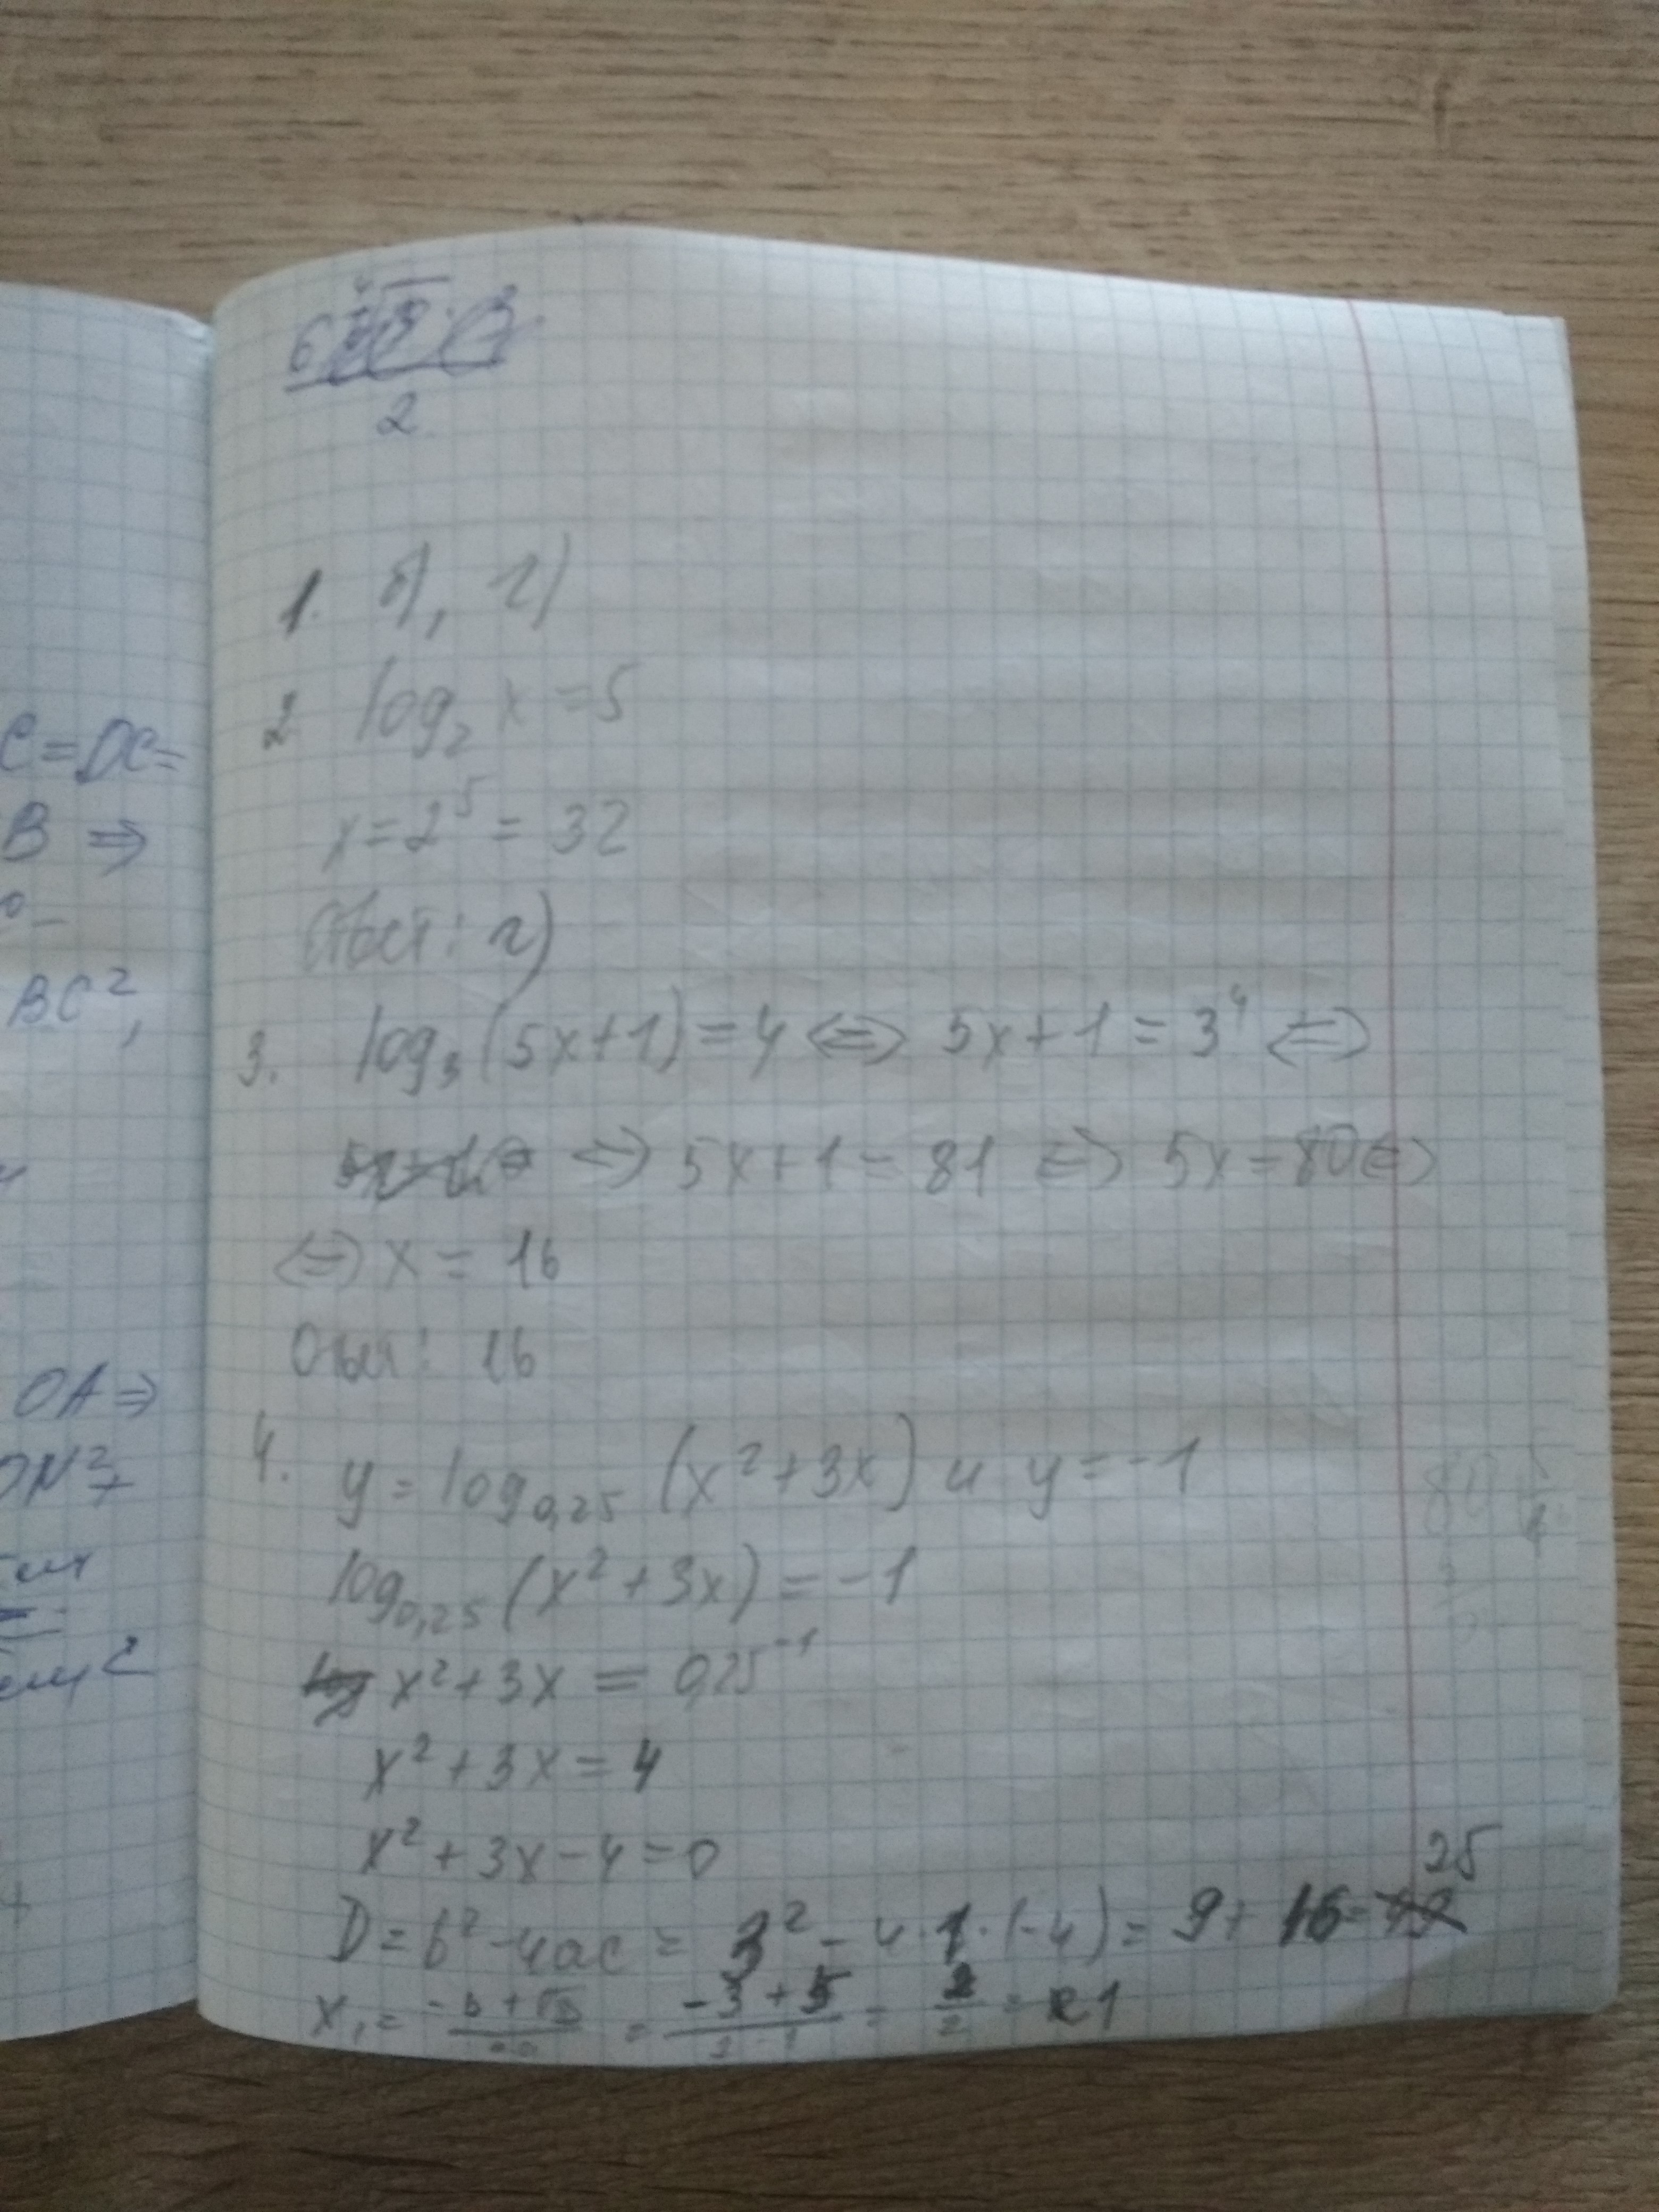 C=DC=
B ⇒
BC²,
OA ⇒
ON²+
6
2
1. б), г)
2. log₂ x = 5
x = 2⁵ = 32
Ответ: г)
3. log₃(5x+1) = 4 ⇔ 5x+1 = 3⁴ ⇔
⇔ 5x+1 = 81 ⇔ 5x = 80 ⇔
⇔ x = 16
Ответ: 16
4. y = log₀,₂₅ (x²+3x) и y = -1
log₀,₂₅ (x²+3x) = -1
x²+3x = 0,25⁻¹
x²+3x = 4
x²+3x-4=0
D = b²-4ac = 3² - 4·1·(-4) = 9 + 16 = 25
x₁ = (-b+√D)/2a = (-3+5)/(2·1) = 2/2 = 1